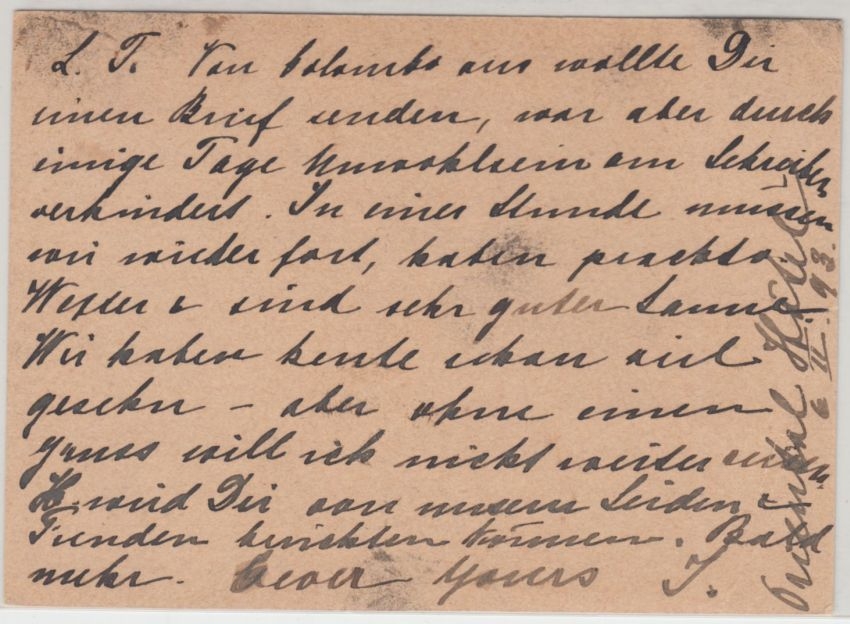 L. T. Von Colombo aus wollte Dir
einen Brief senden, war aber durch
einige Tage Unwohlsein am Schreiben
verhindert. In einer Stunde müssen
wir wieder fort, haben prachtv.
Wetter & sind sehr guter Laune
Wir haben heute schon viel
gesehn – aber ohne einen
Gruss will ich nicht weiter
H. wird Dir von unsern Leiden &
Freuden berichten können. Bald
mehr. Ever Yours J.
Oriental Hotel
6 II. 93.